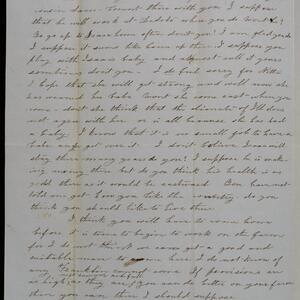 cousin dam. Convert them with you I suppose
that he will work at Toledo when you do won't he?
To go up to Isaacs house often don't you? I am glad you do
I suppose it seems like home up there I suppose you
play with Isaacs baby and almost call it yours
sometimes don't you. I do feel sorry for Nettie
I hope that she will get strong and well now she
has weaned her baby. Won't she come east when you
come. don't she think that the climate of Ill does
not agree with her. or is it all because she has had
a baby. I know that it is no small job to have a
baby and get over it. I don't believe Isaac will
stay there many years do you? I suppose he is mak-
ing money there but do they think his health is as
good there as it would be eastward You have not
told me yet how you like the country. do you
think you should like to live there
I think you will have to come home
before it is time to begin to work on the farm
for I do not think we can get a good and
suitable man to come here I do not know of
any. Franklin If provisions are
as high as they are you can do better on your farm
than you can there I should suppose